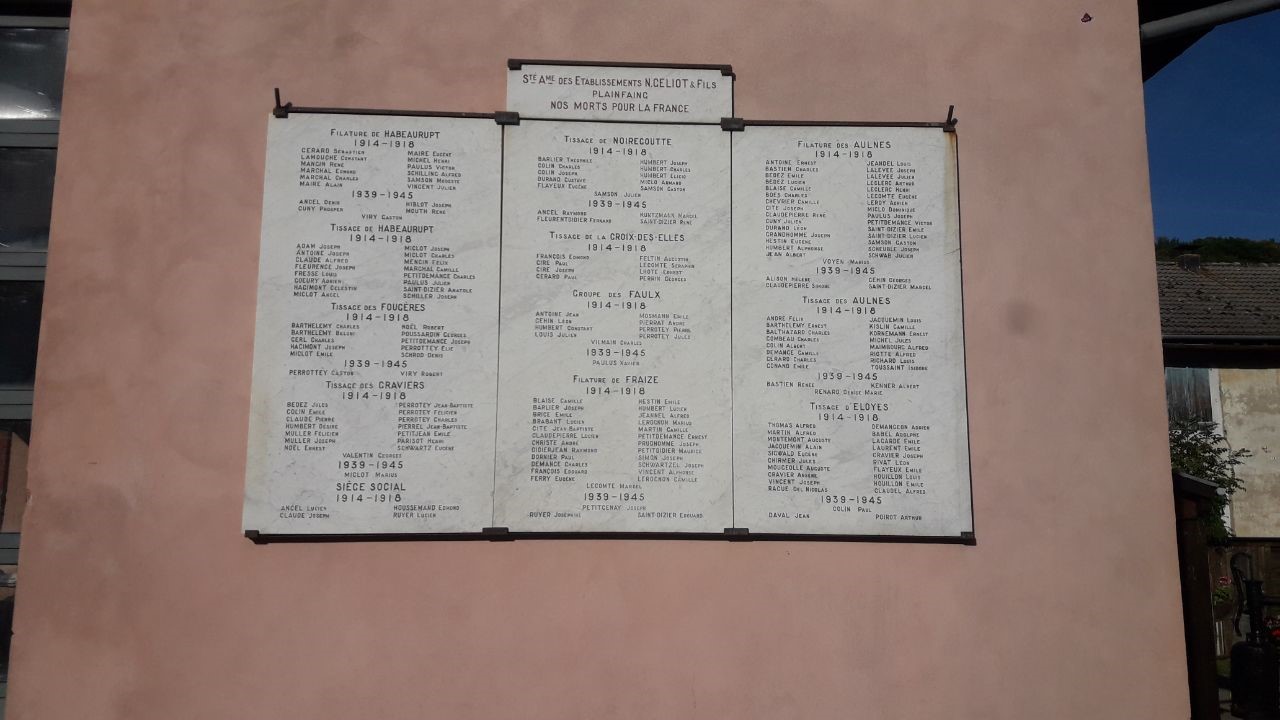 STÉ AME DES ETABLISSEMENTS N. GELIOT & FILS
PLAINFAING
NOS MORTS POUR LA FRANCE
FILATURE DE HABEAURUPT
1914-1918
GERARD SEBASTIEN MAIRE EUGÈNE
LAMOUCHE CONSTANT MICHEL HENRI
MANGIN RENÉ PAULUS VICTOR
MARCHAL EDMOND SCHILLING ALFRED
MARCHAL CHARLES SAMSON MODESTE
MAIRE ALAIN VINCENT JULIEN
1939-1945
ANCEL DENIS HIBLOT JOSEPH
CUNY PROSPER MOUTH RENÉ
VIRY GASTON
TISSAGE DE HABEAURUPT
1914-1918
ADAM JOSEPH MICLOT JOSEPH
ANTOINE JOSEPH MICLOT CHARLES
CLAUDE ALFRED MENGIN FELIX
FLEURENCE JOSEPH MARCHAL CAMILLE
FRESSE LOUIS PETITDEMANGE CHARLES
GOEURY ADRIEN PAULUS JULIEN
HAGIMONT CELESTIN SAINT-DIZIER ANATOLE
MICLOT ANGEL SCHILLER JOSEPH
TISSAGE DES FOUGÈRES
1914-1918
BARTHELEMY CHARLES NOËL ROBERT
BARTHELEMY POUSSARDIN GEORGES
GERL CHARLES PETITDEMANGE JOSEPH
HAGIMONT JOSEPH PERROTTEY ELIE
MICLOT EMILE SCHROD DENIS
1939-1945
PERROTTEY GASTON VIRY ROBERT
TISSAGE DES GRAVIERS
1914-1918
BEDEZ JULES PERROTEY JEAN-BAPTISTE
COLIN EMILE PERROTEY FELICIEN
CLAUDE PIERRE PERROTEY CHARLES
HUMBERT DESIRÉ PIERREL JEAN-BAPTISTE
MULLER FELICIEN PETITJEAN EMILE
MULLER JOSEPH PARISOT HENRI
NOËL ERNEST SCHWARTZ EUGÈNE
VALENTIN GEORGES
1939-1945
MICLOT MARIUS
SIÈGE SOCIAL
1914-1918
ANCEL LUCIEN HOUSSEMAND EDMOND
CLAUDE JOSEPH RUYER LUCIEN
TISSAGE DE NOIREGOUTTE
1914-1918
BARLIER THEOPHILE HUMBERT JOSEPH
COLIN CHARLES HUMBERT CHARLES
COLIN JOSEPH HUMBERT ELIGIO
DURAND GUSTAVE MICLO ARMAND
FLAYEUX EUGÈNE SAMSON GASTON
SAMSON JULIEN
1939-1945
ANCEL RAYMOND KUNTZMANN MARCEL
FLEURENTDIDIER FERNAND SAINT-DIZIER RENÉ
TISSAGE DE LA CROIX-DES-ELLES
1914-1918
FRANÇOIS EDMOND FELTIN AUGUSTIN
CIRE PAUL LECOMTE SERAPHIN
CIRE JOSEPH LHOTE ERNEST
GERARD PAUL PERRIN GEORGES
GROUPE DES FAULX
1914-1918
ANTOINE JEAN MOSMANN EMILE
GEHIN LEON PIERRAT ANDRÉ
HUMBERT CONSTANT PERROTEY PIERRE
LOUIS JULIEN PERROTEY JULES
VILMAIN CHARLES
1939-1945
PAULUS XAVIER
FILATURE DE FRAIZE
1914-1918
BLAISE CAMILLE HESTIN EMILE
BARLIER JOSEPH HUMBERT LUCIEN
BRICE EMILE JEANNEL ALFRED
BRABANT LUCIEN LEROGNON MARIUS
CITÉ JEAN BAPTISTE MARTIN CAMILLE
CLAUDEPIERRE LUCIEN PETITDEMANGE ERNEST
CHRISTE ANDRÉ PRUDHOMME JOSEPH
DIDIERJEAN RAYMOND PETITDIDIER MAURICE
DORNIER PAUL SIMON JOSEPH
DEMANGE CHARLES SCHWARTZEL JOSEPH
FRANÇOIS EDOUARD VINCENT ALPHONSE
FERRY EUGÈNE LEROGNON CAMILLE
LECOMTE MARCEL
1939-1945
PETITGENAY JOSEPH
RUYER JOSEPHINE SAINT-DIZIER EDOUARD
FILATURE DES AULNES
1914-1918
ANTOINE ERNEST JEANDEL LOUIS
BASTIEN CHARLES LALEVÉE JOSEPH
BEDEZ EMILE LALEVÉE JULIEN
BEDEZ LUCIEN LECLERC ARTHUR
BLAISE CAMILLE LECLERC HENRI
BOES CHARLES LECOMTE EUGÈNE
CHEVRIER CAMILLE LEROY ADRIEN
CITÉ JOSEPH MICLO DOMINIQUE
CLAUDEPIERRE RENÉ PAULUS JOSEPH
CUNY JULIEN PETITDEMANGE VICTOR
DURAND LEON SAINT-DIZIER EMILE
GRANDHOMME JOSEPH SAINT-DIZIER LUCIEN
HESTIN EUGÈNE SAMSON GASTON
HUMBERT ALPHONSE SCHEUBLE JOSEPH
JEAN ALBERT SCHWAB JULIEN
VOYEN MARIUS
1939-1945
ALISON HELENE GEHIN GEORGES
CLAUDEPIERRE SIMONE SAINT-DIZIER MARCEL
TISSAGE DES AULNES
1914-1918
ANDRÉ FELIX JACQUEMIN LOUIS
BARTHELEMY ERNEST KISLIN CAMILLE
BALTHAZARD CHARLES KORNEMANN ERNEST
COMBEAU CHARLES MICHEL JULES
COLIN ALBERT MAIMBOURG ALFRED
DEMANGE CAMILLE RIOTTE ALFRED
GERARD CHARLES RICHARD LOUIS
GENAND EMILE TOUSSAINT ISIDORE
1939-1945
BASTIEN RENÉE KENNER ALBERT
RENARD DENISE MARIE
TISSAGE D'ELOYES
1914-1918
THOMAS ALFRED DEMANGEON ADRIEN
MARTIN ALFRED BABEL ADOLPHE
MONTEMONT AUGUSTE LAGARDE EMILE
JACQUEMIN ALAIN LAURENT EMILE
SIGWALD EUGÈNE GRAVIER JOSEPH
CHIRHMER JULES RIVAT LEON
MOUGEOLLE AUGUSTE FLAYEUX EMILE
GRAVIER HOUILLON LOUIS
VINCENT JOSEPH HOUILLON EMILE
RAGUE NICOLAS CLAUDEL ALFRED
1939-1945
COLIN PAUL
DAVAL JEAN POIROT ARTHUR